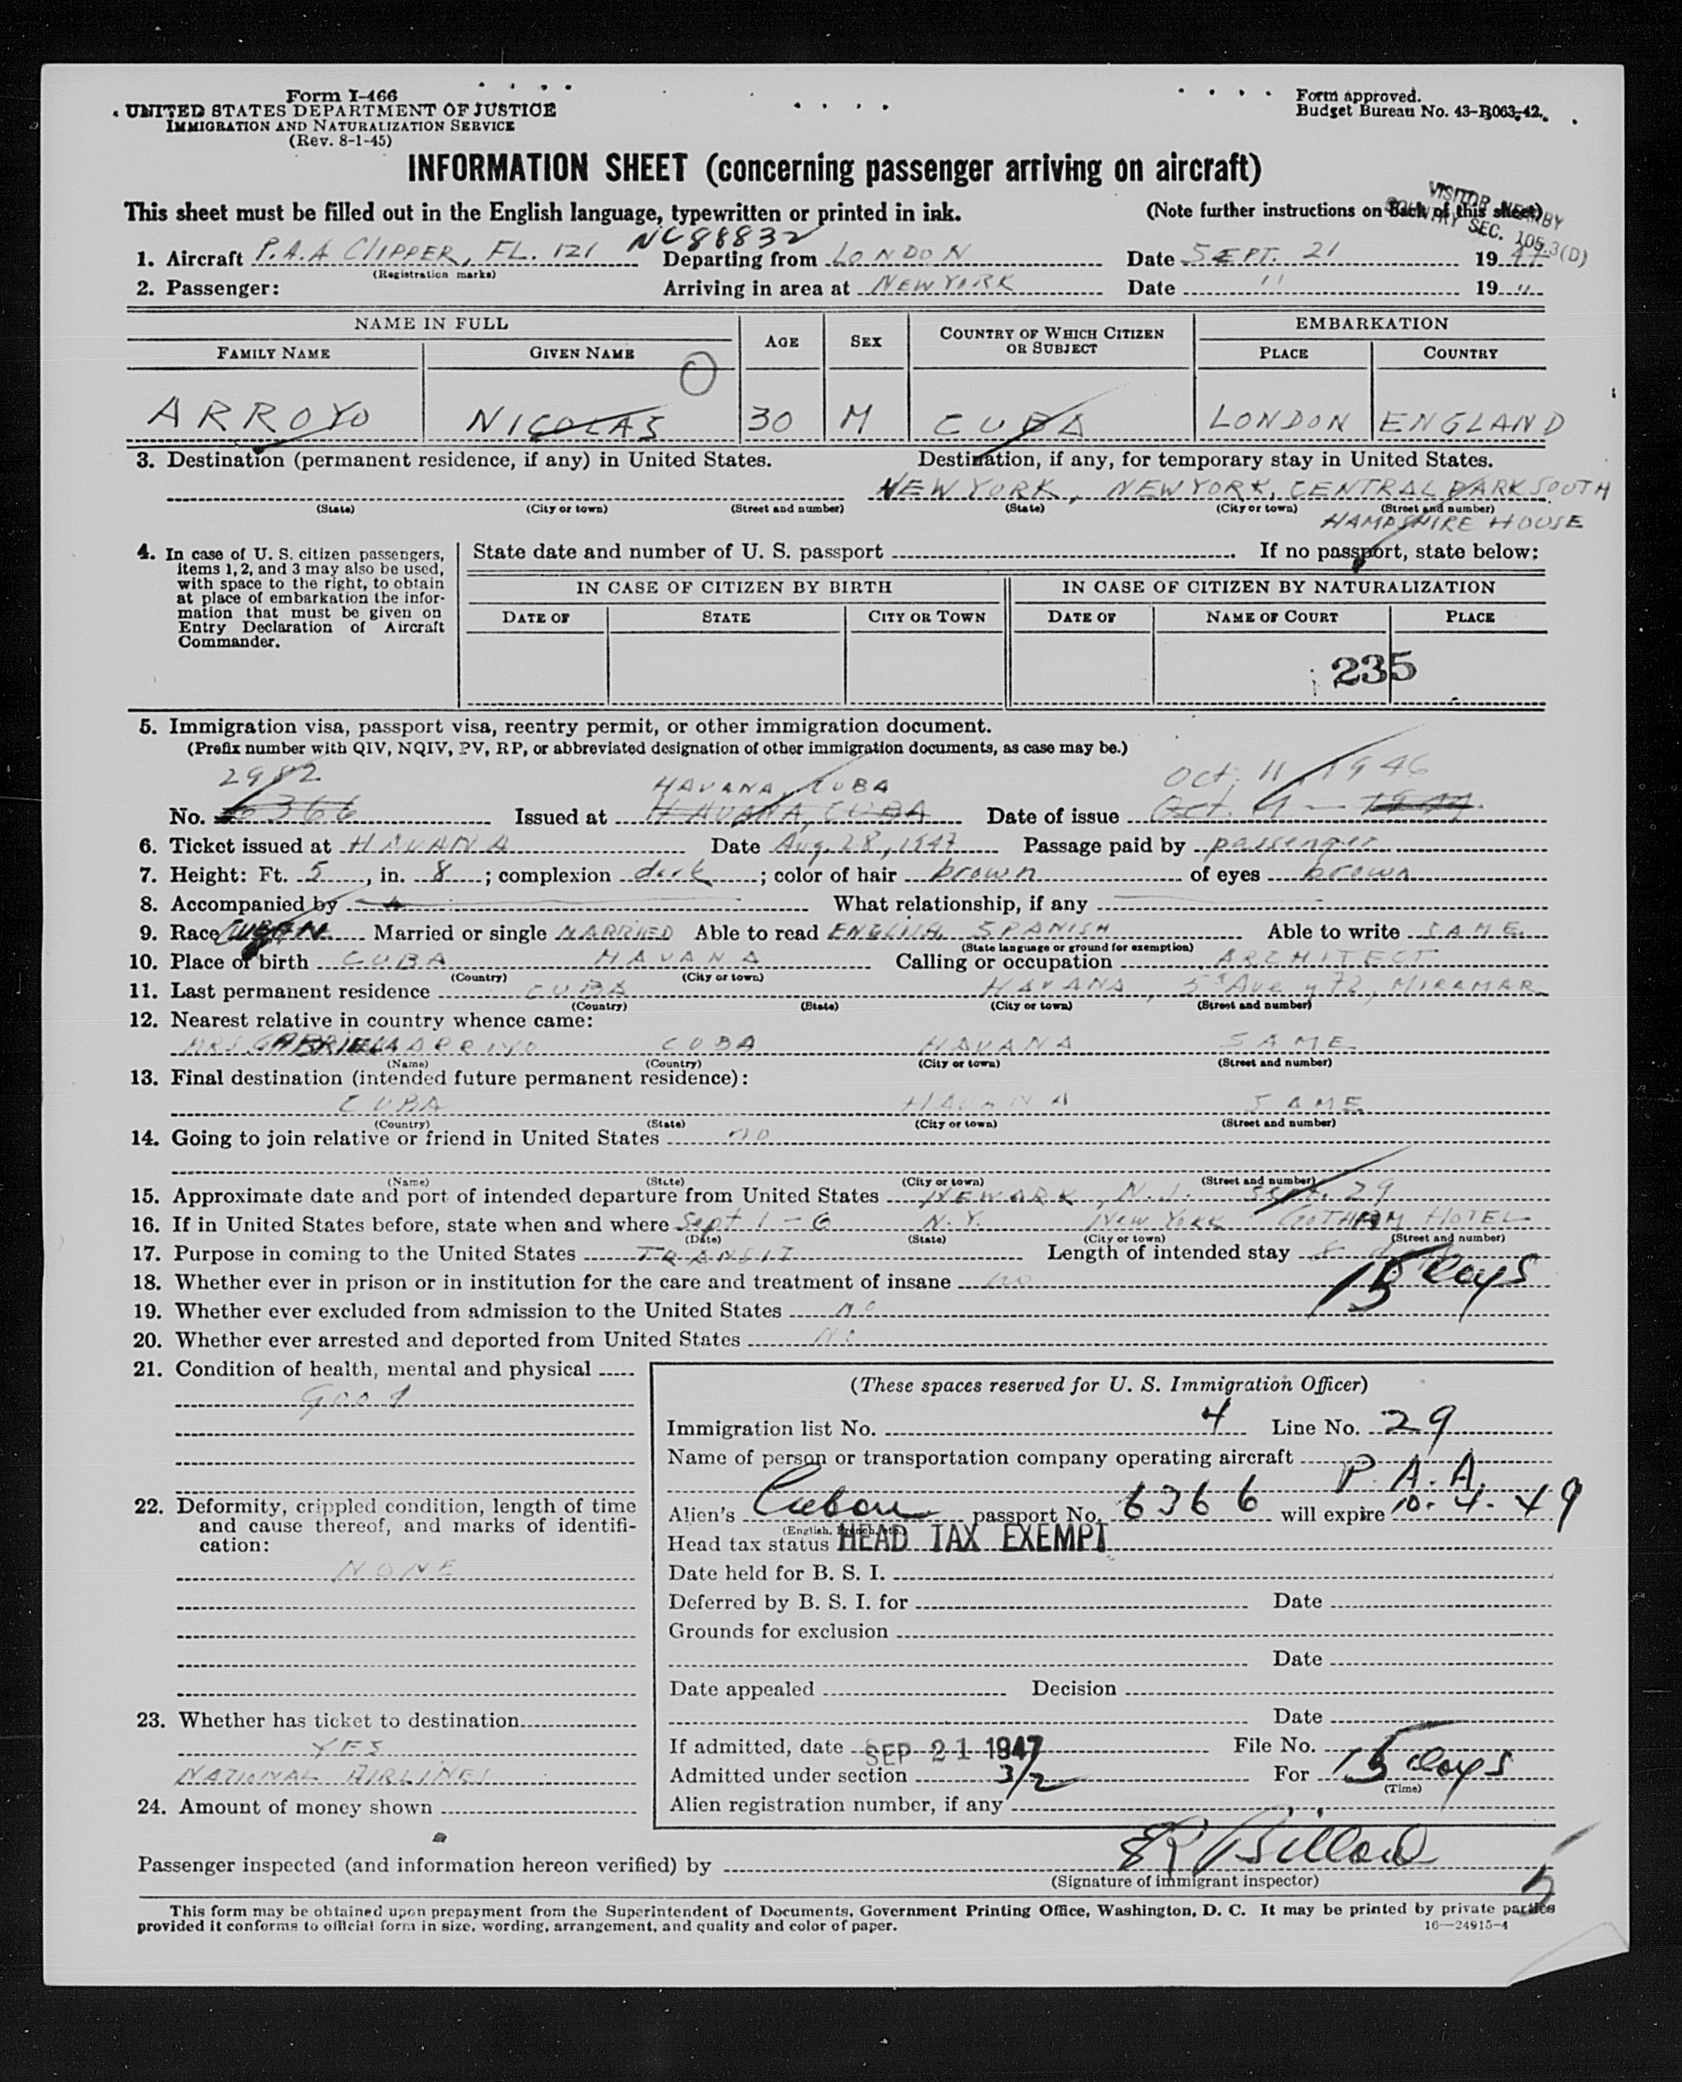 Form I-466
UNITED STATES DEPARTMENT OF JUSTICE
IMMIGRATION AND NATURALIZATION SERVICE
(Rev. 8-1-45)
Form approved.
Budget Bureau No. 43-R063-42.
INFORMATION SHEET (concerning passenger arriving on aircraft)
This sheet must be filled out in the English language, typewritten or printed in ink.
(Note further instructions on back of this sheet)
VISITOR NEARBY
COUNTRY SEC. 105.3(D)
NC88832
1. Aircraft P.A.A CLIPPER, FL. 121 Departing from LONDON Date SEPT. 21 1947
(Registration marks)
2. Passenger: Arriving in area at NEW YORK Date " 19 "
NAME IN FULL AGE SEX COUNTRY OF WHICH CITIZEN OR SUBJECT EMBARKATION
FAMILY NAME GIVEN NAME PLACE COUNTRY
ARROYO NICOLAS 30 M CUBA LONDON ENGLAND
3. Destination (permanent residence, if any) in United States. Destination, if any, for temporary stay in United States.
NEW YORK, NEW YORK, CENTRAL PARK SOUTH
(State) (City or town) (Street and number) (State) (City or town) (Street and number)
HAMPSHIRE HOUSE
4. In case of U. S. citizen passengers, items 1, 2, and 3 may also be used, with space to the right, to obtain at place of embarkation the information that must be given on Entry Declaration of Aircraft Commander.
State date and number of U. S. passport . If no passport, state below:
IN CASE OF CITIZEN BY BIRTH IN CASE OF CITIZEN BY NATURALIZATION
DATE OF STATE CITY OR TOWN DATE OF NAME OF COURT PLACE
235
5. Immigration visa, passport visa, reentry permit, or other immigration document.
(Prefix number with QIV, NQIV, PV, RP, or abbreviated designation of other immigration documents, as case may be.)
2982 HAVANA, CUBA Oct. 11, 1946
No. 6366 Issued at HAVANA, CUBA Date of issue Oct. 4
6. Ticket issued at HAVANA Date Aug. 28, 1947 Passage paid by passenger
7. Height: Ft. 5, in. 8; complexion dark; color of hair brown of eyes brown
8. Accompanied by What relationship, if any
9. Race CUBAN Married or single MARRIED Able to read ENGLISH, SPANISH Able to write SAME
(State language or ground for exemption)
10. Place of birth CUBA HAVANA Calling or occupation ARCHITECT
(Country) (City or town)
11. Last permanent residence CUBA HAVANA, 5ª Ave y 72, MIRAMAR
(Country) (State) (City or town) (Street and number)
12. Nearest relative in country whence came:
MRS. GABRIELA ARROYO CUBA HAVANA SAME
(Name) (Country) (City or town) (Street and number)
13. Final destination (intended future permanent residence):
CUBA HAVANA SAME
(Country) (State) (City or town) (Street and number)
14. Going to join relative or friend in United States no
(Name) (State) (City or town) (Street and number)
15. Approximate date and port of intended departure from United States NEWARK, N.J. Sept. 29
16. If in United States before, state when and where Sept 1 - 6 N.Y. New York GOTHAM HOTEL
(Date) (State) (City or town) (Street and number)
17. Purpose in coming to the United States TRANSIT Length of intended stay 8
15 days
18. Whether ever in prison or in institution for the care and treatment of insane no
19. Whether ever excluded from admission to the United States no
20. Whether ever arrested and deported from United States No
21. Condition of health, mental and physical
Good
22. Deformity, crippled condition, length of time and cause thereof, and marks of identification:
NONE
23. Whether has ticket to destination
YES
NATIONAL AIRLINES
24. Amount of money shown
(These spaces reserved for U. S. Immigration Officer)
Immigration list No. 4 Line No. 29
Name of person or transportation company operating aircraft
P. A. A.
Alien's Cuban passport No. 6366 will expire 10-4-49
(English, French, etc.)
Head tax status HEAD TAX EXEMPT
Date held for B. S. I.
Deferred by B. S. I. for Date
Grounds for exclusion
Date
Date appealed Decision
Date
If admitted, date SEP 21 1947 File No.
Admitted under section 3/2 For 15 days
(Time)
Alien registration number, if any
Passenger inspected (and information hereon verified) by
(Signature of immigrant inspector)
5
This form may be obtained upon prepayment from the Superintendent of Documents, Government Printing Office, Washington, D. C. It may be printed by private parties
provided it conforms to official form in size, wording, arrangement, and quality and color of paper.
16—24915-4